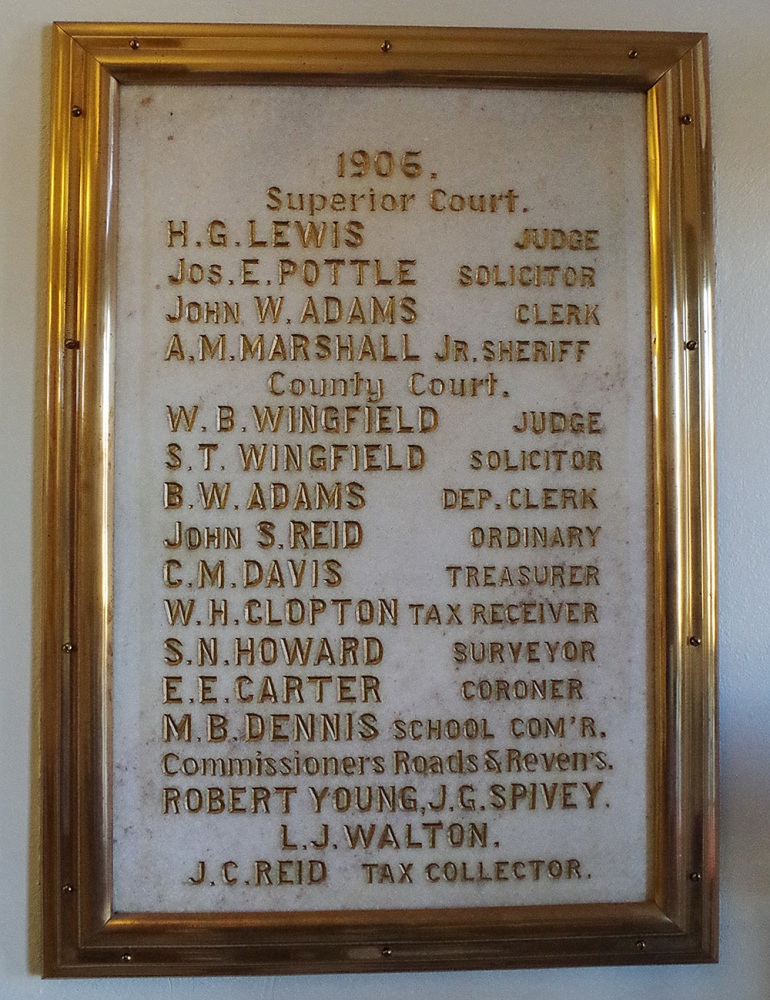 1906.
Superior Court.
H.G. LEWIS JUDGE
JOS. E. POTTLE SOLICITOR
JOHN W. ADAMS CLERK
A.M. MARSHALL JR. SHERIFF
County Court.
W.B. WINGFIELD JUDGE
S.T. WINGFIELD SOLICITOR
B.W. ADAMS DEP. CLERK
JOHN S. REID ORDINARY
C.M. DAVIS TREASURER
W.H. CLOPTON TAX RECEIVER
S.N. HOWARD SURVEYOR
E.E. CARTER CORONER
M.B. DENNIS SCHOOL COM'R.
Commissioners Roads & Reven's.
ROBERT YOUNG, J.G. SPIVEY.
L.J. WALTON.
J.C. REID TAX COLLECTOR.